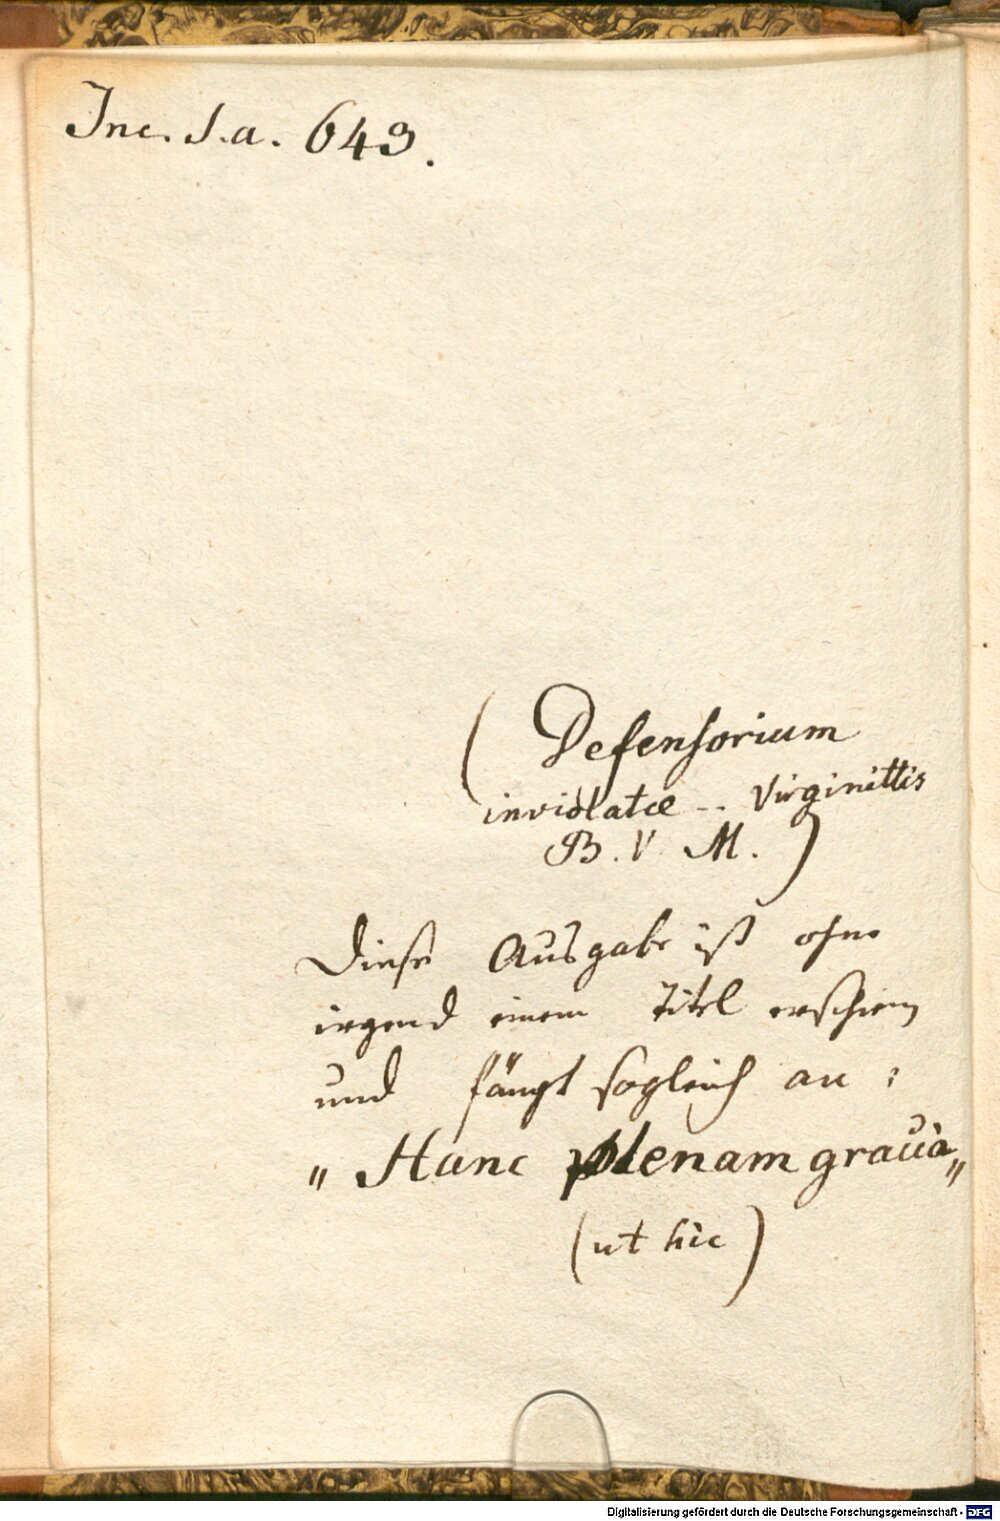 Inc. s. a. 643.
( Defensorium
inviolatæ -- Virginittis
B. V. M. )
Diese Ausgabe ist ohne
irgend einem Titel erschienen
und fängt sogleich an :
„ Hanc plenam
(ut hic)
Digitalisierung gefördert durch die Deutsche Forschungsgemeinschaft - DFG